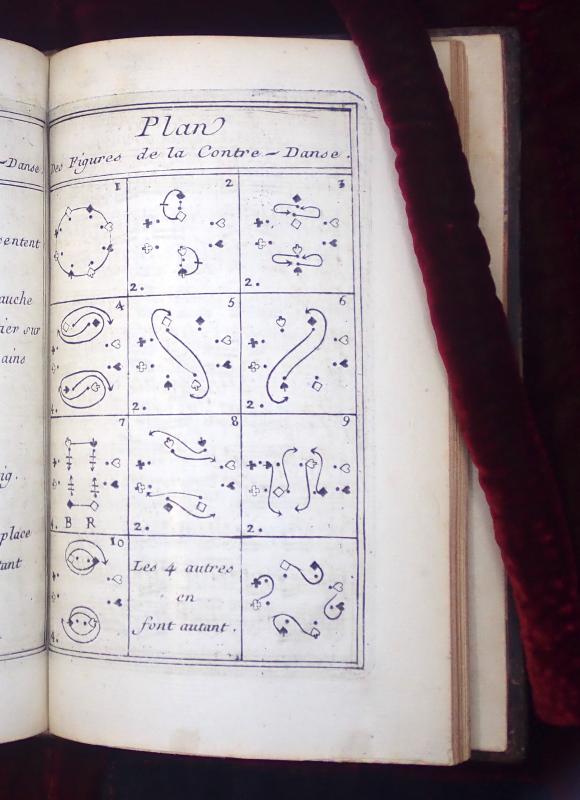 -Danse.
auche
ier sur
ains
ig.
place
tant
Plan
Des Figures de la Contre-Danse.
1
2
3
2.
2.
4
5
6
4.
2.
2.
7
8
9
4. B R
2.
2.
10
Les 4 autres
en
font autant.
4.